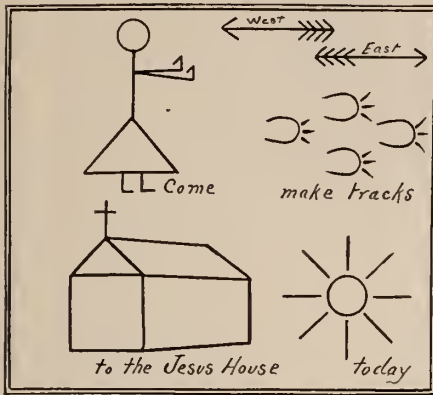 West
East
Come
make tracks
to the Jesus House
today